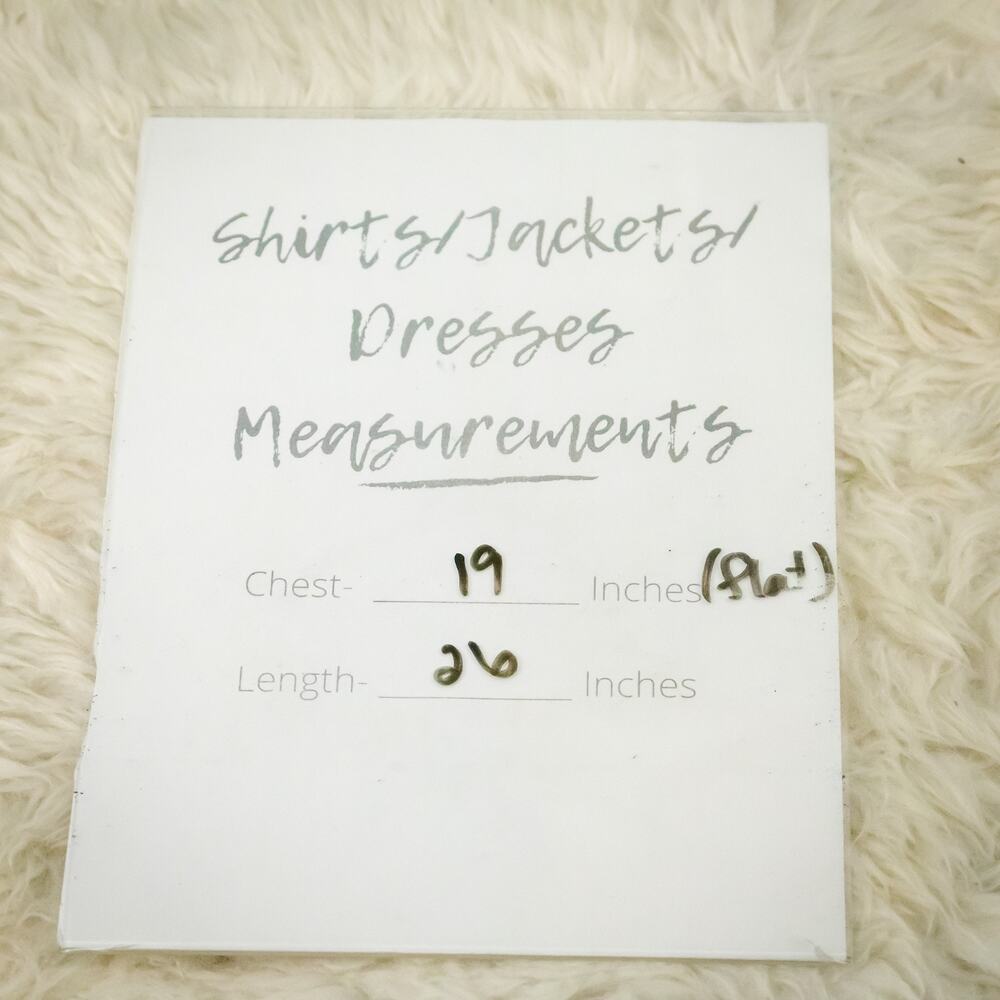 Shirts/Jackets/
Dresses
Measurements
Chest- 19 Inches (flat)
Length- 26 Inches